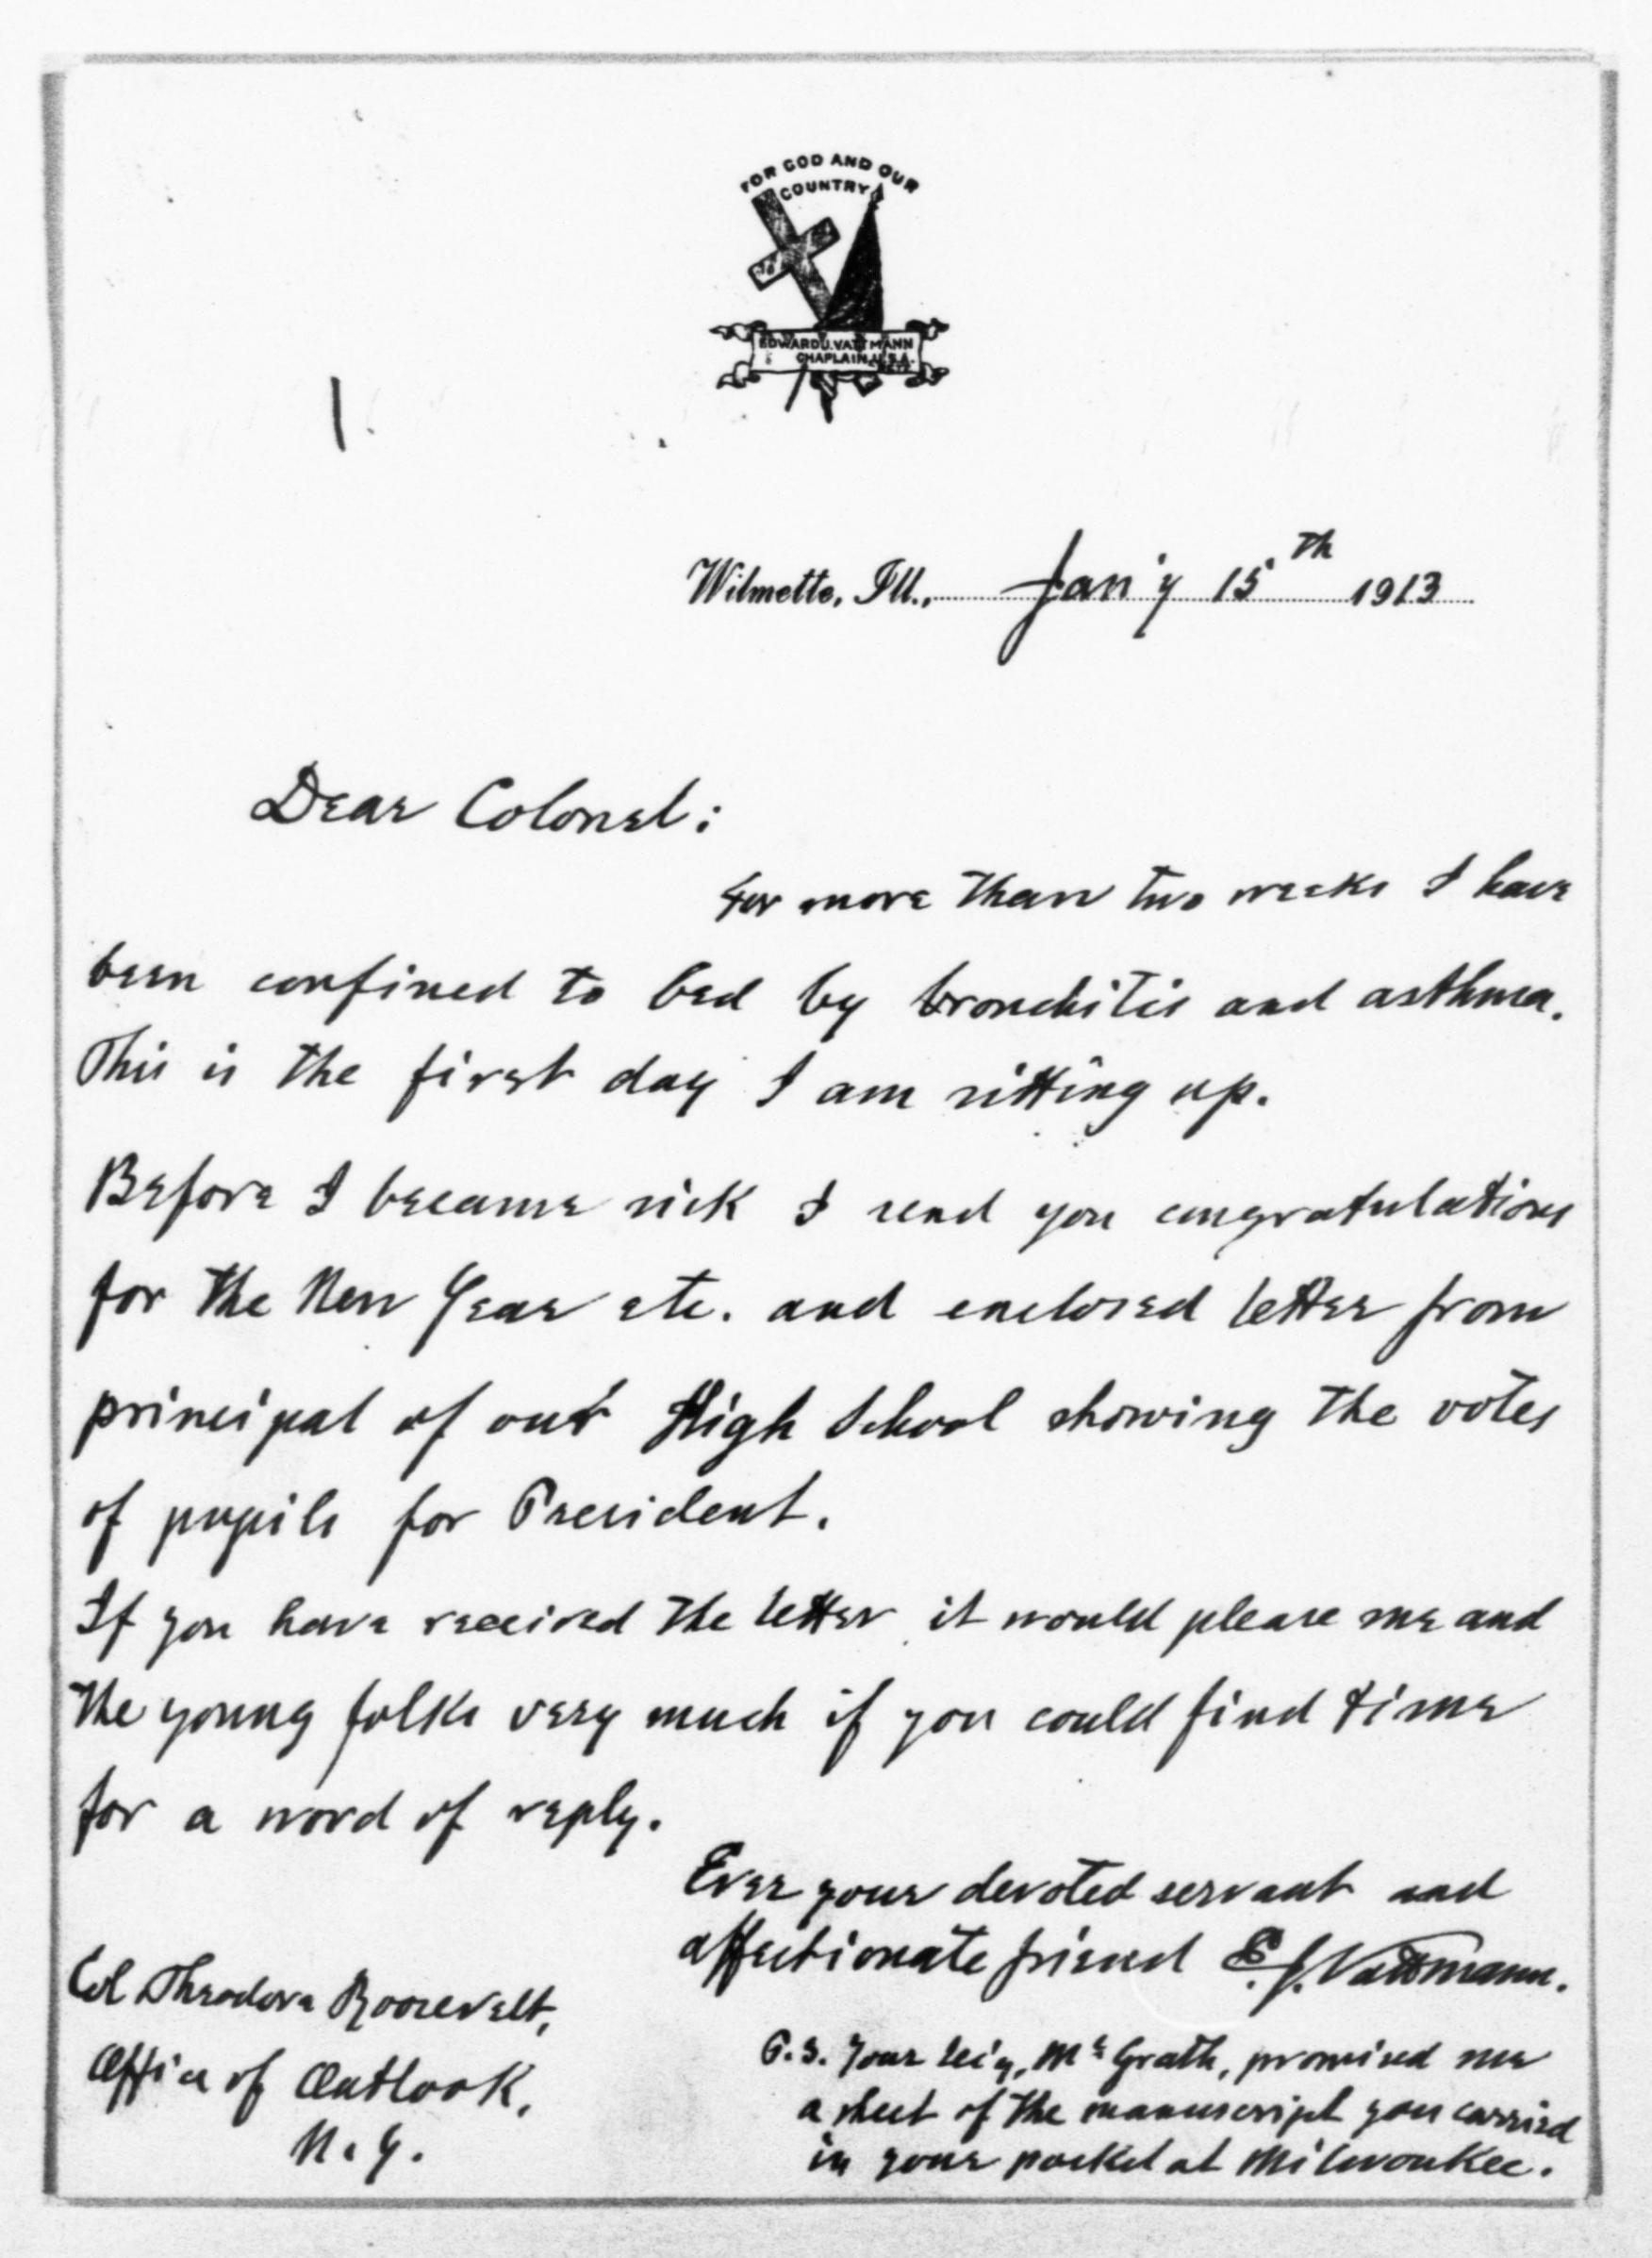 FOR GOD AND OUR
COUNTRY
EDWARD J. VATTMANN
CHAPLAIN, U.S.A.
1.
Wilmette, Ill., Jan'y 15th 1913
Dear Colonel:
For more than two weeks I have
been confined to bed by bronchitis and asthma.
This is the first day I am sitting up.
Before I became sick I send you congratulations
for the New Year etc. and enclosed letter from
principal of our High School showing the votes
of pupils for President.
If you have received the letter it would please me and
the young folks very much if you could find time
for a word of reply.
Ever your devoted servant and
affectionate friend E. J. Vattmann.
Col Theodore Roosevelt,
Office of Outlook,
N.Y.
P.S. Your Mc Grath, promised me
a sheet of the manuscript you carried
in your pocket at Milwaukee.